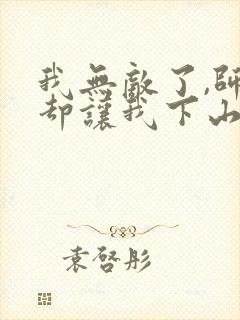 我無敵了,師
却讓我下山
袁啓彤